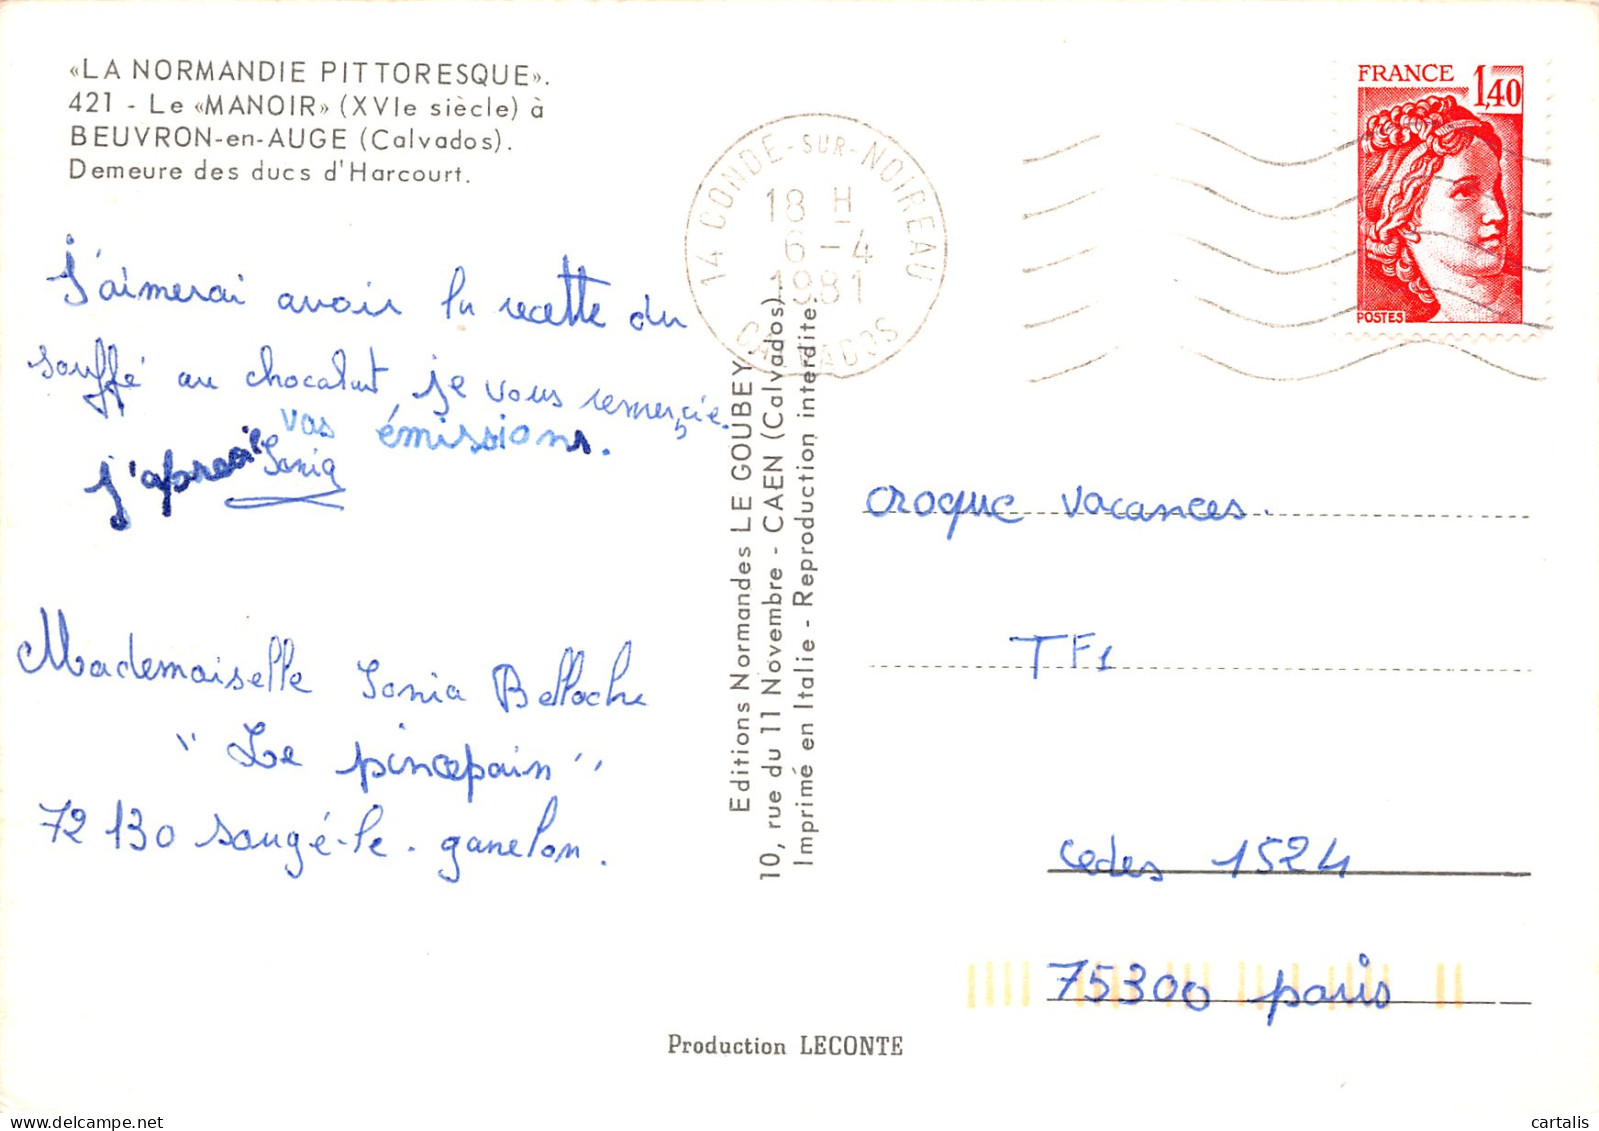 «LA NORMANDIE PITTORESQUE».
421 - Le «MANOIR» (XVIe siècle) à
BEUVRON-en-AUGE (Calvados).
Demeure des ducs d'Harcourt.
J'aimerai avoir la recette du
souffé au chocolat je vous remerçie.
j'apreci vos émissions.
Sonia
Mademoiselle Sonia Belloche
"Le pincepain"
72130 sougé-le-ganelon.
14 CONDE-SUR-NOIREAU
18 H
6-4
1981
CALVADOS
FRANCE 1,40
POSTES
Editions Normandes LE GOUBEY
10, rue du 11 Novembre - CAEN (Calvados)
Imprimé en Italie - Reproduction interdite
croque vacances.
TF1
cedes 1524
75300 paris
Production LECONTE
cartalis